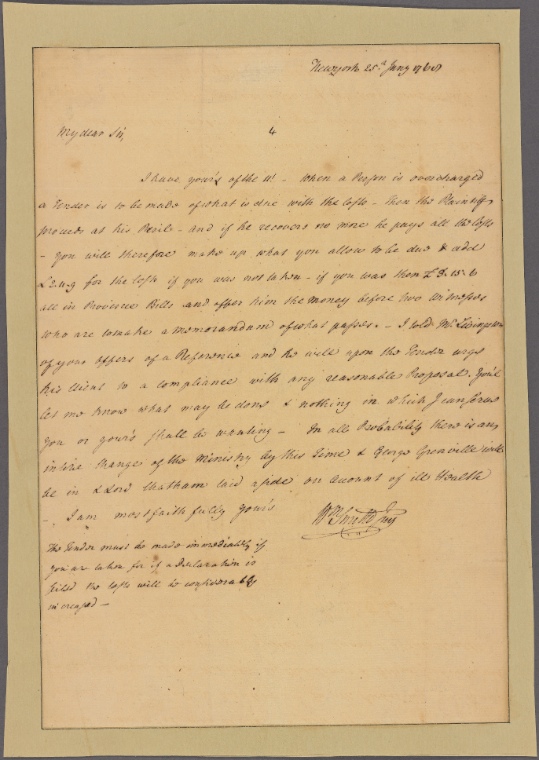 New york 25th Jany 1768
My dear Sir,
4
I have your's of the 11t - When a Person is overcharged
a Tender is to be made of what is due with the Costs - Then the Plaintiff
proceeds at his Peril - and if he recovers no more he pays all the Costs
- You will therefore make up what you allow to be due & add
£2.4.9 for the Costs if you was not taken - if you was then £
all in Province Bills and offer him the money before two Witnesses
who are to make a memorandum of what passes. - I told Mr Livingston
of your offers of a Reference and he will upon the Tender urge
his Client to a compliance with any reasonable Proposal. You'l
let me know what may be done & nothing in which I can serve
you or your's shall be wanting - In all Probability there is an
intire Change of the Ministry by this Time & George Grenville will
be in & Lord Chatham laid aside on account of ill Health
- I am most faithfully your's
Wm Smith Junr
The Tender must be made immediately if
you are taken for if a declaration is
filed the Costs will be considerably
increased -